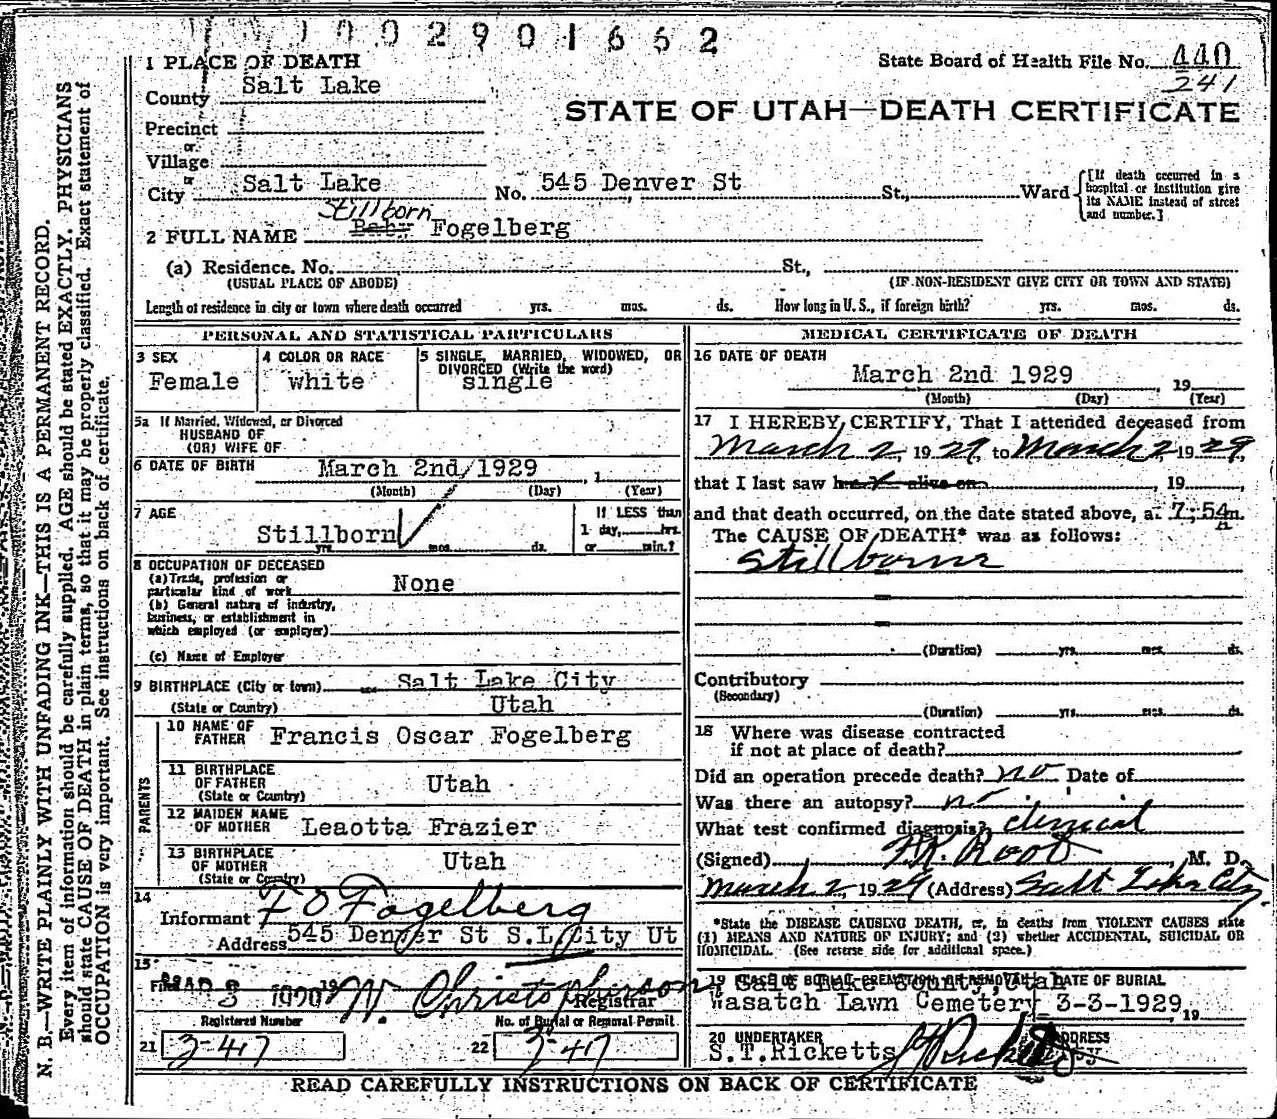 0 0 2 9 0 1 6 6 2
1 PLACE OF DEATH
State Board of Health File No. 440
241
County Salt Lake
STATE OF UTAH—DEATH CERTIFICATE
Precinct
or
Village
or
City Salt Lake No. 545 Denver St St., Ward
[If death occurred in a hospital or institution give its NAME instead of street and number.]
Stillborn
2 FULL NAME Baby Fogelberg
(a) Residence. No. St.,
(USUAL PLACE OF ABODE) (IF NON-RESIDENT GIVE CITY OR TOWN AND STATE)
Length of residence in city or town where death occurred yrs. mos. ds. How long in U. S., if foreign birth? yrs. mos. ds.
PERSONAL AND STATISTICAL PARTICULARS
3 SEX
Female
4 COLOR OR RACE
white
5 SINGLE, MARRIED, WIDOWED, OR
DIVORCED (Write the word)
single
5a If Married, Widowed, or Divorced
HUSBAND OF
(OR) WIFE OF
6 DATE OF BIRTH March 2nd 1929 , 1
(Month) (Day) (Year)
7 AGE
Stillborn
yrs. mos. ds.
If LESS than
1 day, hrs.
or min.?
8 OCCUPATION OF DECEASED
(a) Trade, profession or
particular kind of work None
(b) General nature of industry,
business, or establishment in
which employed (or employer)
(c) Name of Employer
9 BIRTHPLACE (City or town) Salt Lake City
(State or Country) Utah
PARENTS
10 NAME OF
FATHER Francis Oscar Fogelberg
11 BIRTHPLACE
OF FATHER Utah
(State or Country)
12 MAIDEN NAME
OF MOTHER Leaotta Frazier
13 BIRTHPLACE
OF MOTHER Utah
(State or Country)
14
Informant F O Fogelberg
Address 545 Denver St S.L City Ut
15
W. Christopherson
Registrar
Registered Number No. of Burial or Removal Permit
21 3-47 22 3-47
MEDICAL CERTIFICATE OF DEATH
16 DATE OF DEATH
March 2nd 1929 , 19
(Month) (Day) (Year)
17 I HEREBY CERTIFY, That I attended deceased from
March 2, 1929, to March 2, 1929,
that I last saw her alive on , 19 ,
and that death occurred, on the date stated above, at 7:54 m.
The CAUSE OF DEATH* was as follows:
Stillborn
(Duration) yrs. mos. ds.
Contributory
(Secondary)
(Duration) yrs. mos. ds.
18 Where was disease contracted
if not at place of death?
Did an operation precede death? no Date of
Was there an autopsy? no
What test confirmed diagnosis? clinical
(Signed) F.K. Root , M. D.
March 2, 1929 (Address) Salt Lake City
*State the DISEASE CAUSING DEATH, or, in deaths from VIOLENT CAUSES state
(1) MEANS AND NATURE OF INJURY; and (2) whether ACCIDENTAL, SUICIDAL OR
HOMICIDAL. (See reverse side for additional space.)
19 PLACE OF BURIAL CREMATION OR REMOVAL DATE OF BURIAL
Salt Lake County, Utah
Wasatch Lawn Cemetery 3-3-1929, 19
20 UNDERTAKER ADDRESS
S.T.Ricketts
READ CAREFULLY INSTRUCTIONS ON BACK OF CERTIFICATE
N. B.—WRITE PLAINLY WITH UNFADING INK—THIS IS A PERMANENT RECORD.
Every item of information should be carefully supplied. AGE should be stated EXACTLY. PHYSICIANS
should state CAUSE OF DEATH in plain terms, so that it may be properly classified. Exact statement of
OCCUPATION is very important. See instructions on back of certificate.